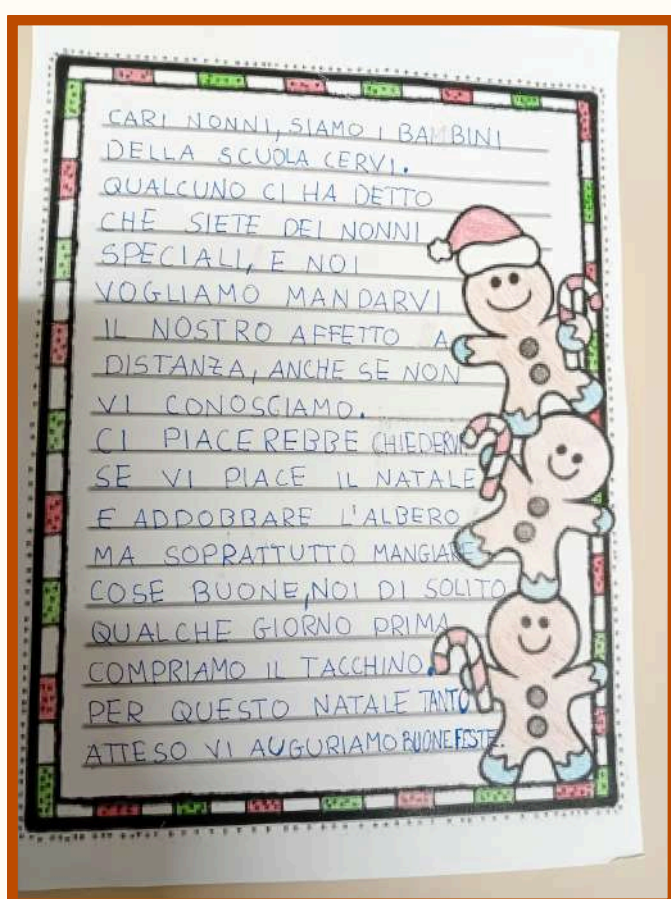 CARI NONNI, SIAMO I BAMBINI
DELLA SCUOLA CERVI.
QUALCUNO CI HA DETTO
CHE SIETE DEI NONNI
SPECIALI, E NOI
VOGLIAMO MANDARVI
IL NOSTRO AFFETTO A
DISTANZA, ANCHE SE NON
VI CONOSCIAMO.
CI PIACEREBBE CHIEDERVI
SE VI PIACE IL NATALE
E ADDOBBARE L'ALBERO
MA SOPRATTUTTO MANGIARE
COSE BUONE, NOI DI SOLITO
QUALCHE GIORNO PRIMA
COMPRIAMO IL TACCHINO.
PER QUESTO NATALE TANTO
ATTESO VI AUGURIAMO BUONE FESTE.